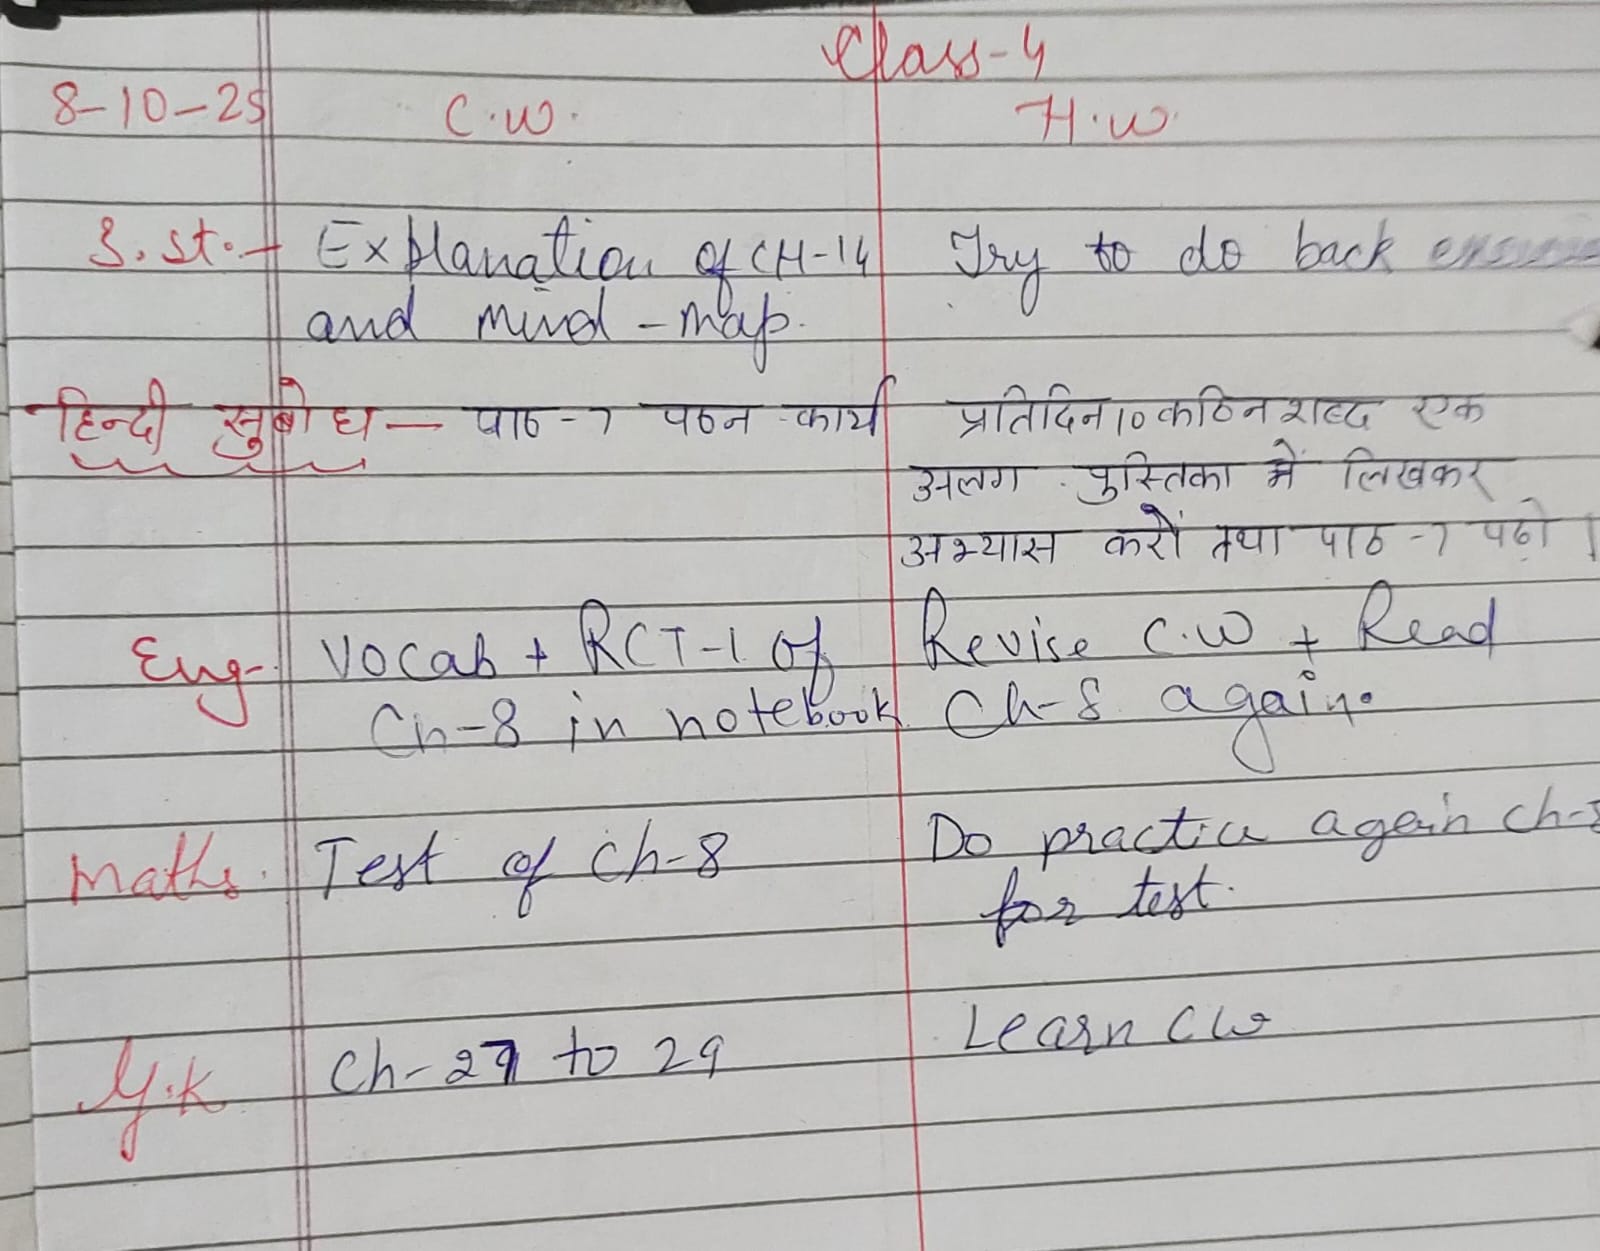 Class-4
8-10-25 C.W. H.W.
S.St.- Explanation of CH-14 Try to do back
and mind-map.
हिन्दी सुबोध — पाठ-7 पठन-कार्य प्रतिदिन 10 कठिन शब्द एक
अलग पुस्तिका में लिखकर
अभ्यास करों तथा पाठ-7 पढो।
Eng- Vocab + RCT-1 of Revise C.W + Read
Ch-8 in notebook Ch-8 again.
Maths. Test of Ch-8 Do practice again ch-8
for test.
G.K Ch-27 to 29 Learn CW